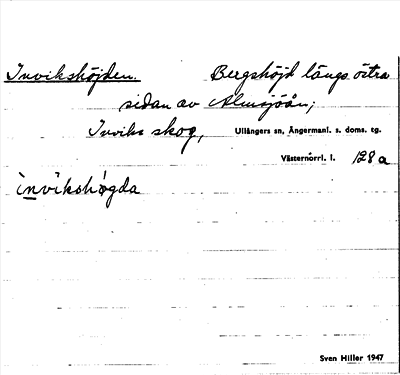 Invikshöjden. Bergshöjd längs östra
sidan av Almsjöån;
Inviks skog, Ullångers sn, Ångermanl. s. doms. tg.
Västernorrl. l. 128 a
invikshögda
Sven Hiller 1947